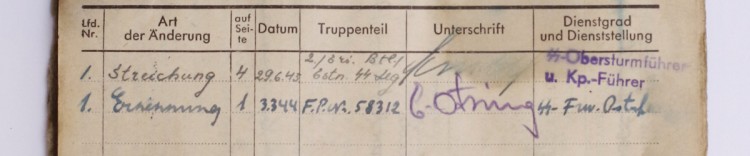 Lfd. Nr. Art der Änderung auf Seite Datum Truppenteil Unterschrift Dienstgrad und Dienststellung
1. Streichung 4 29.6.43 2./ Btl. Estn. SS Leg SS-Obersturmführer u. Kp.-Führer
1. Ernennung 1 3.3.44 F.P.Nr. 58312 SS-